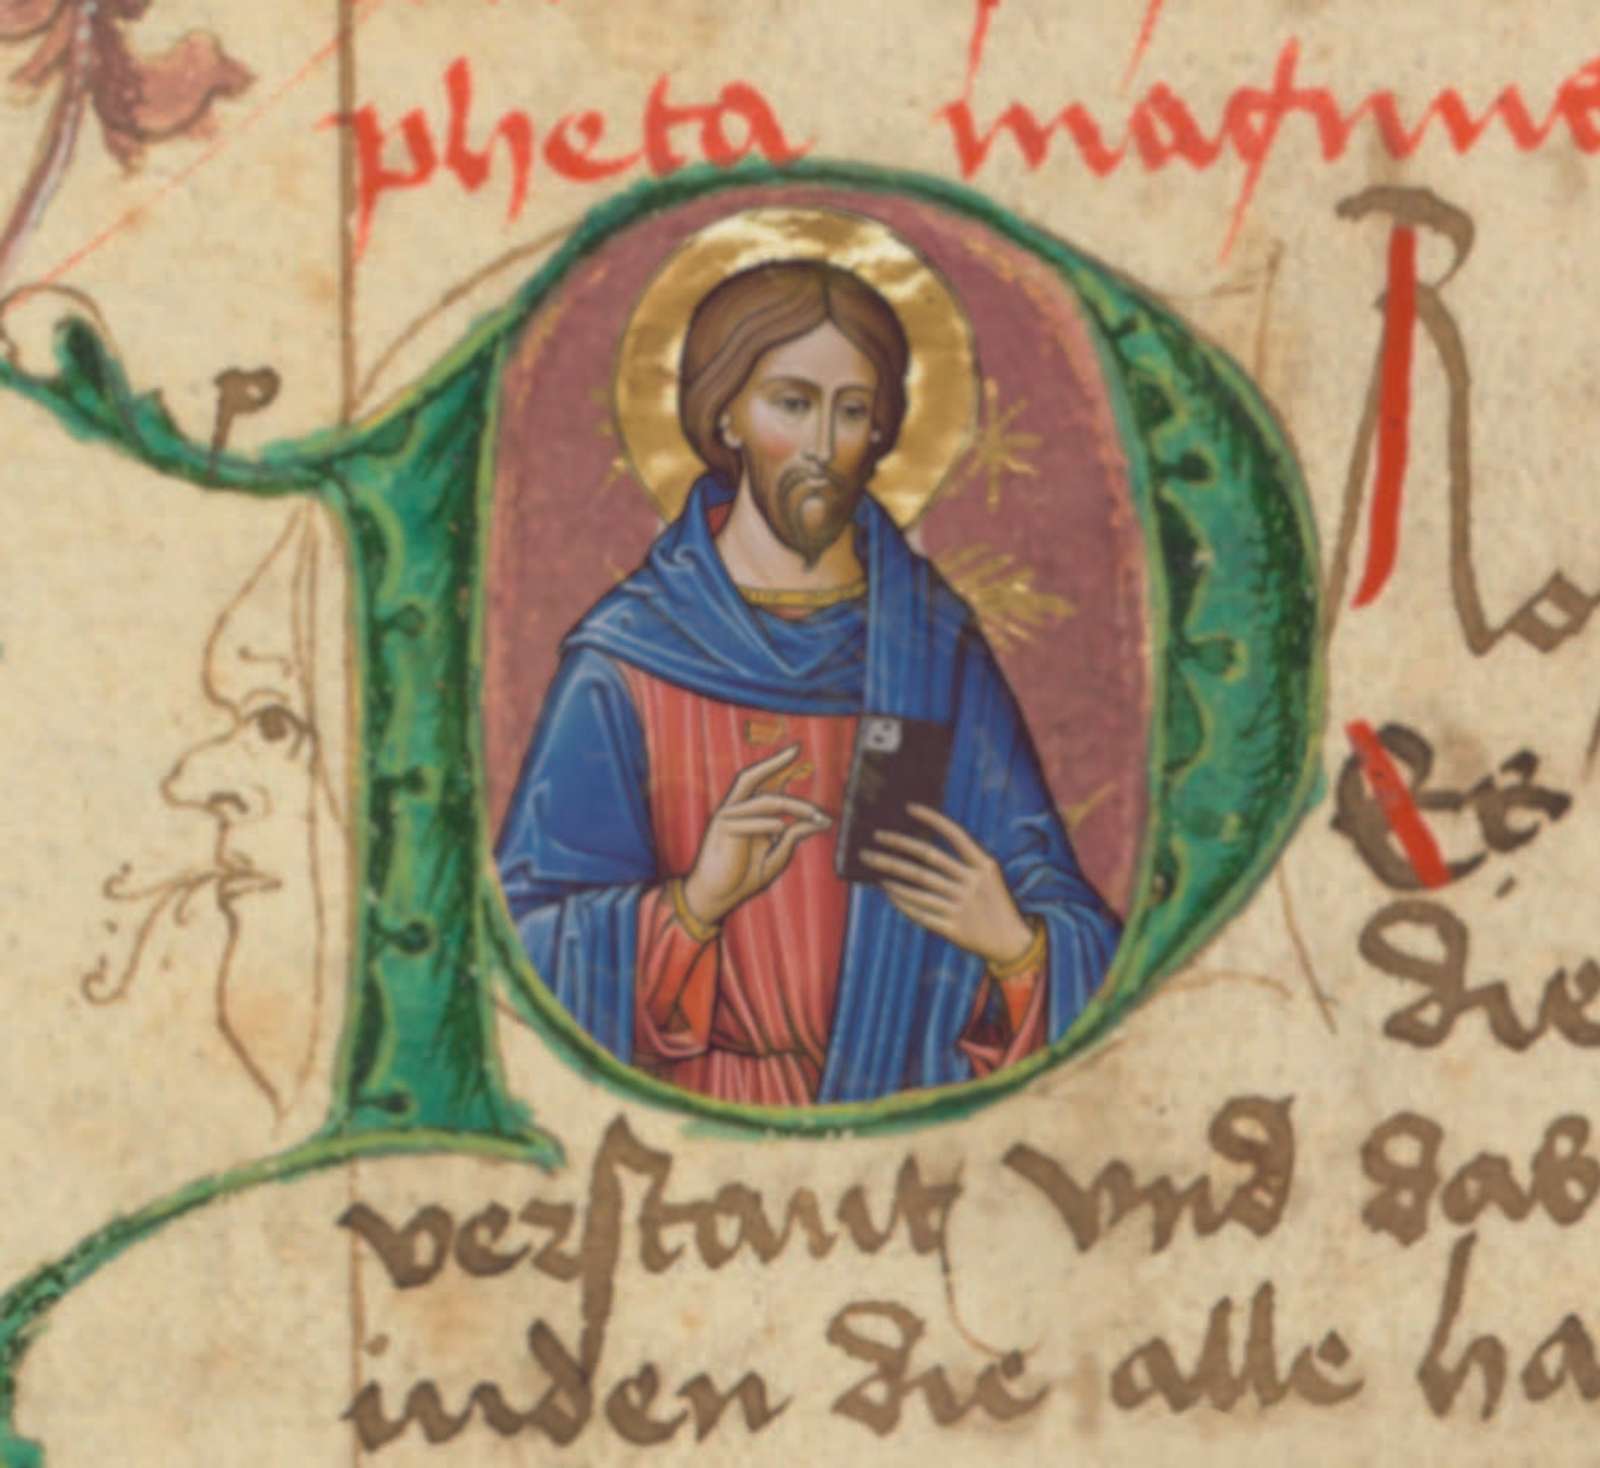 pheta magnus
P
R
Et
die
verstant vnd das
inden die alle ha